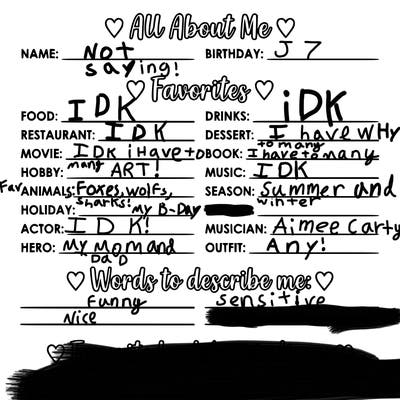 ♡ All About Me ♡
NAME: Not saying! BIRTHDAY: J 7
♡ Favorites ♡
FOOD: IDK DRINKS: iDK
RESTAURANT: IDK DESSERT: I have
MOVIE: IDK iHave to many BOOK: I have to many
HOBBY: many ART! MUSIC: IDK
Fav ANIMALS: Foxes, wolfs, sharks! SEASON: Summer and winter
HOLIDAY: my B-Day
ACTOR: IDK! MUSICIAN: Aimee Carty
HERO: My Mom and DaD OUTFIT: Any!
♡ Words to describe me: ♡
Funny sensitive
Nice